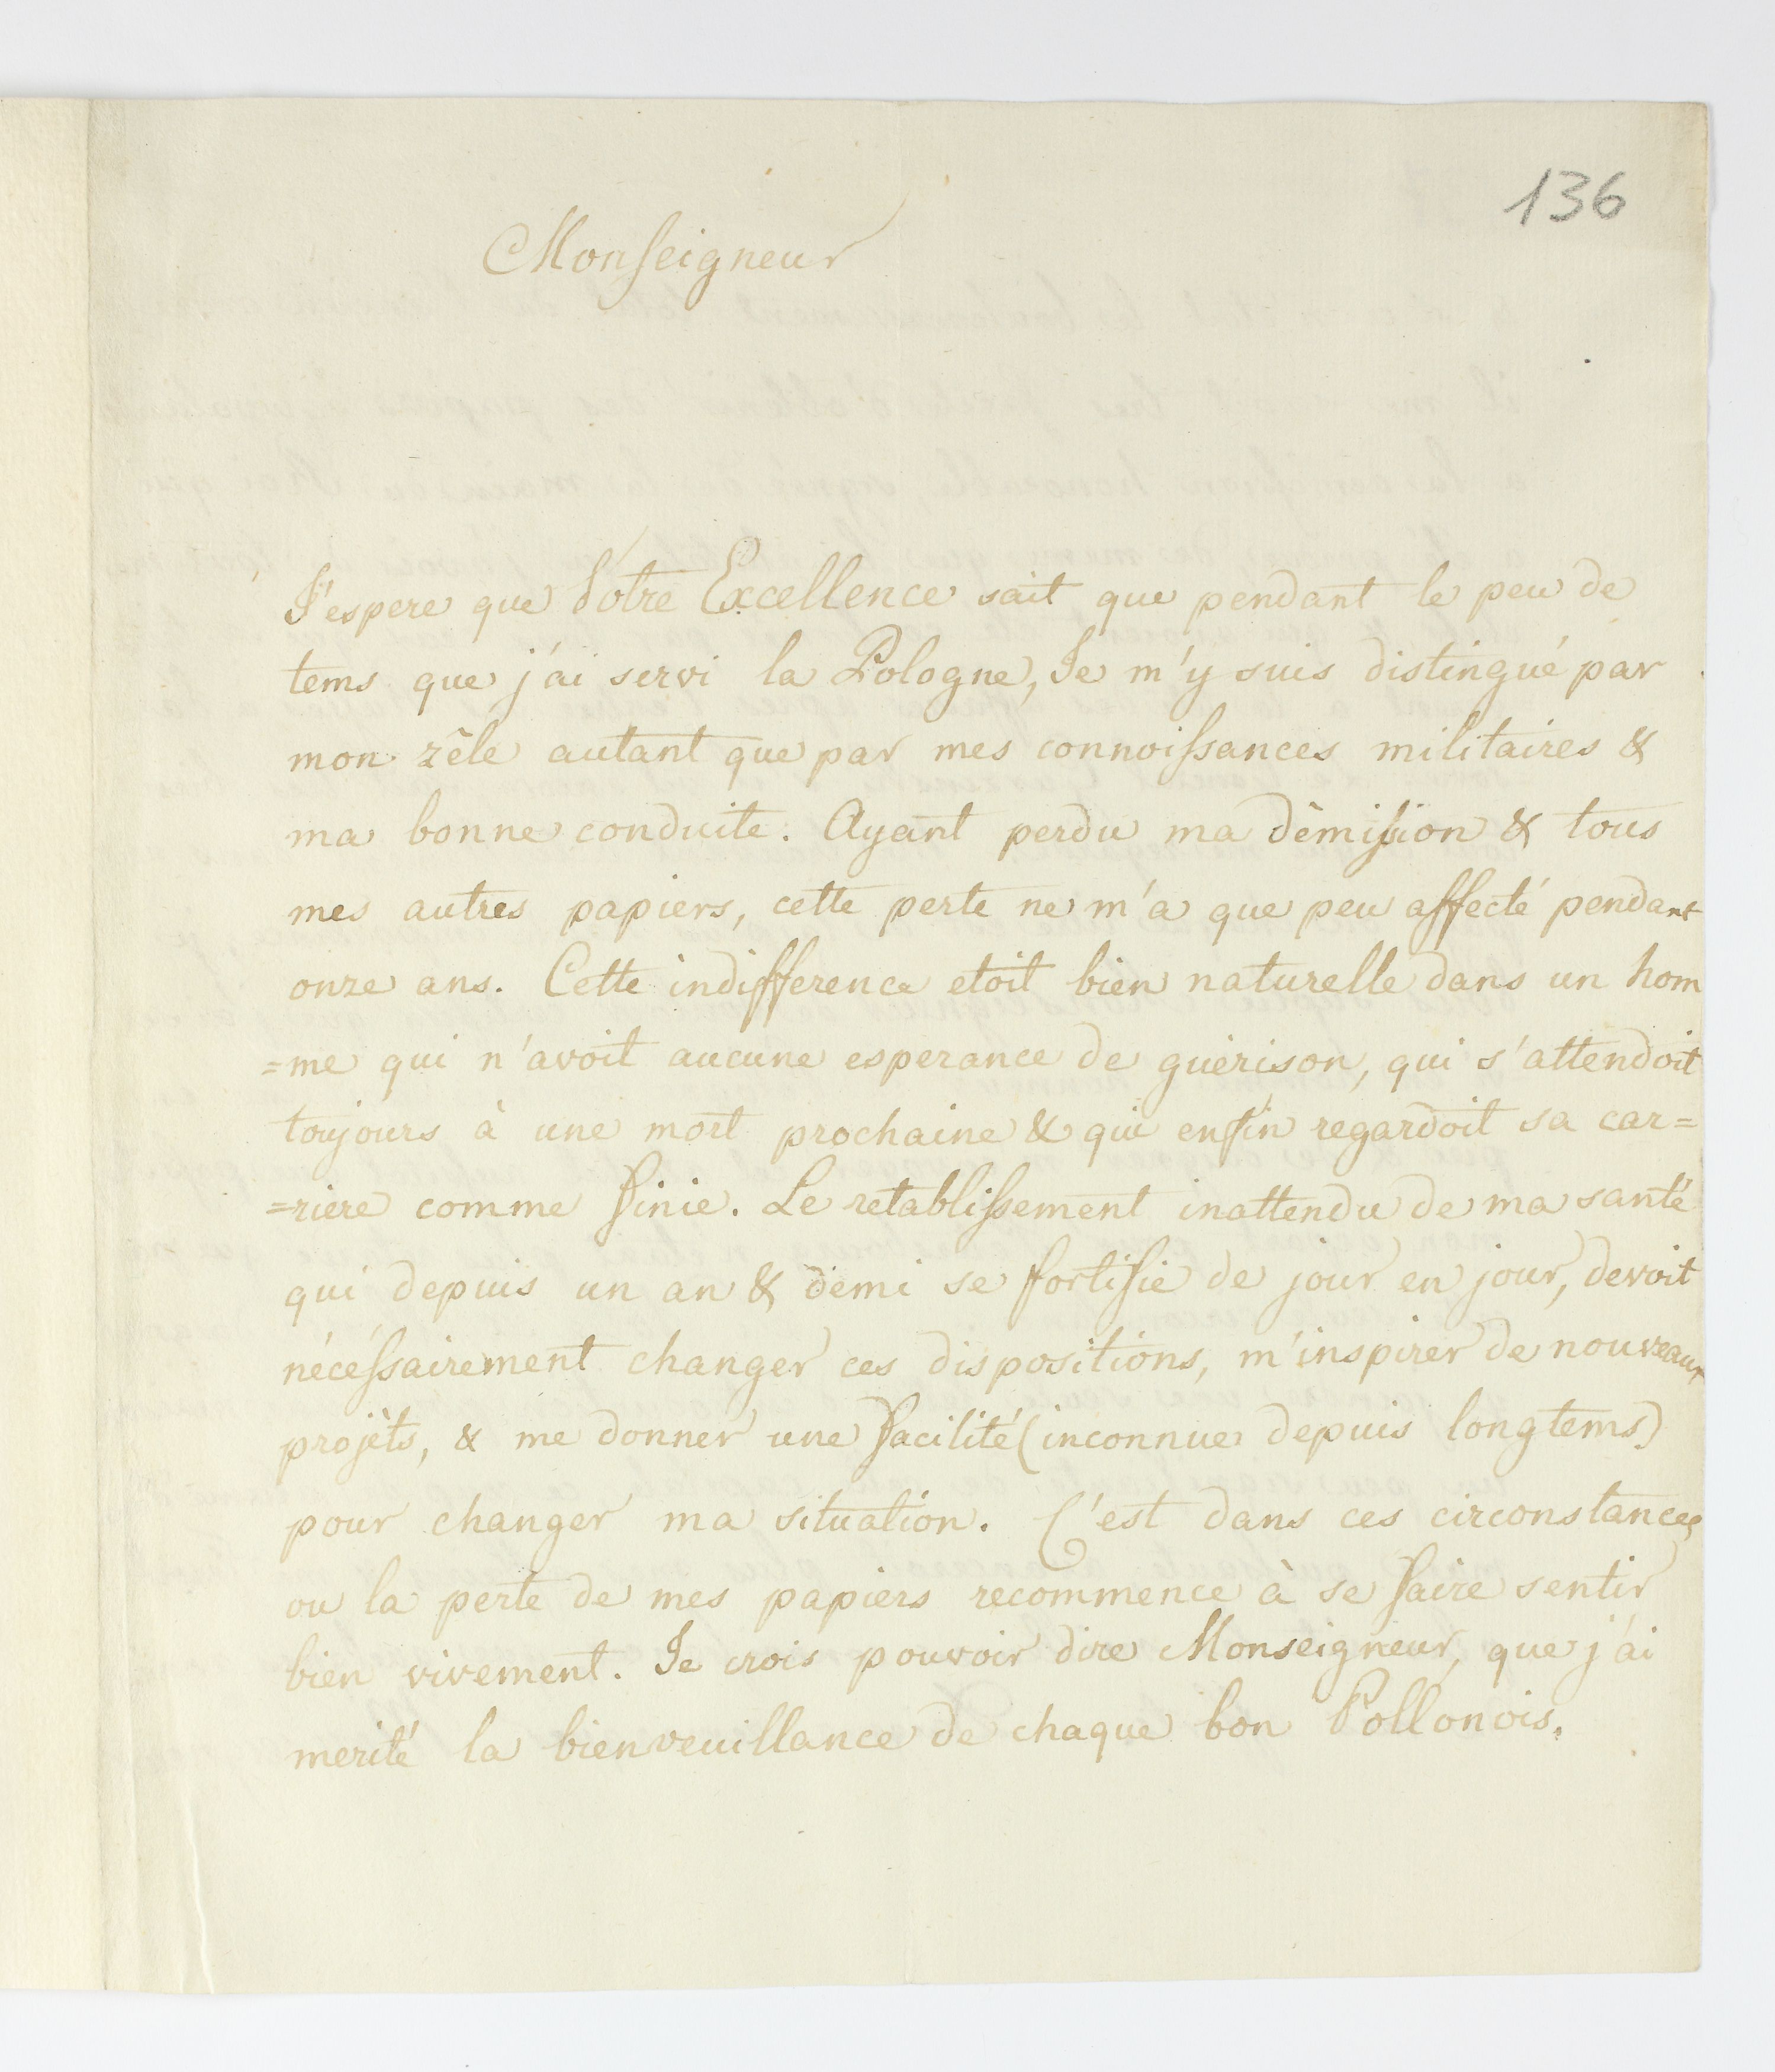 136
Monseigneur
J'espere que Votre Excellence sait que pendant le peu de
tems que j'ai servi la Pologne, Je m'y suis distingué par
mon zêle autant que par mes connoissances militaires &
ma bonne conduite. Ayant perdu ma dêmission & tous
mes autres papiers, cette perte ne m'a que peu affecté pendant
onze ans. Cette indifference etoit bien naturelle dans un hom
=me qui n'avoit aucune esperance de guérison, qui s'attendoit
toujours à une mort prochaine & qui enfin regardoit sa car=
=riere comme finie. Le retablissement inattendu de ma santé
qui depuis un an & demi se fortifie de jour en jour, devoit
nécéssairement changer ces dispositions, m'inspirer de nouveaux
projèts, & me donner une facilité (inconnue depuis longtems)
pour changer ma situation. C'est dans ces circonstances
ou la perte de mes papiers recommence à se faire sentir
bien vivement. Je crois pouvoir dire Monseigneur, que j'ai
merité la bienveuillance de chaque bon Pollonois.